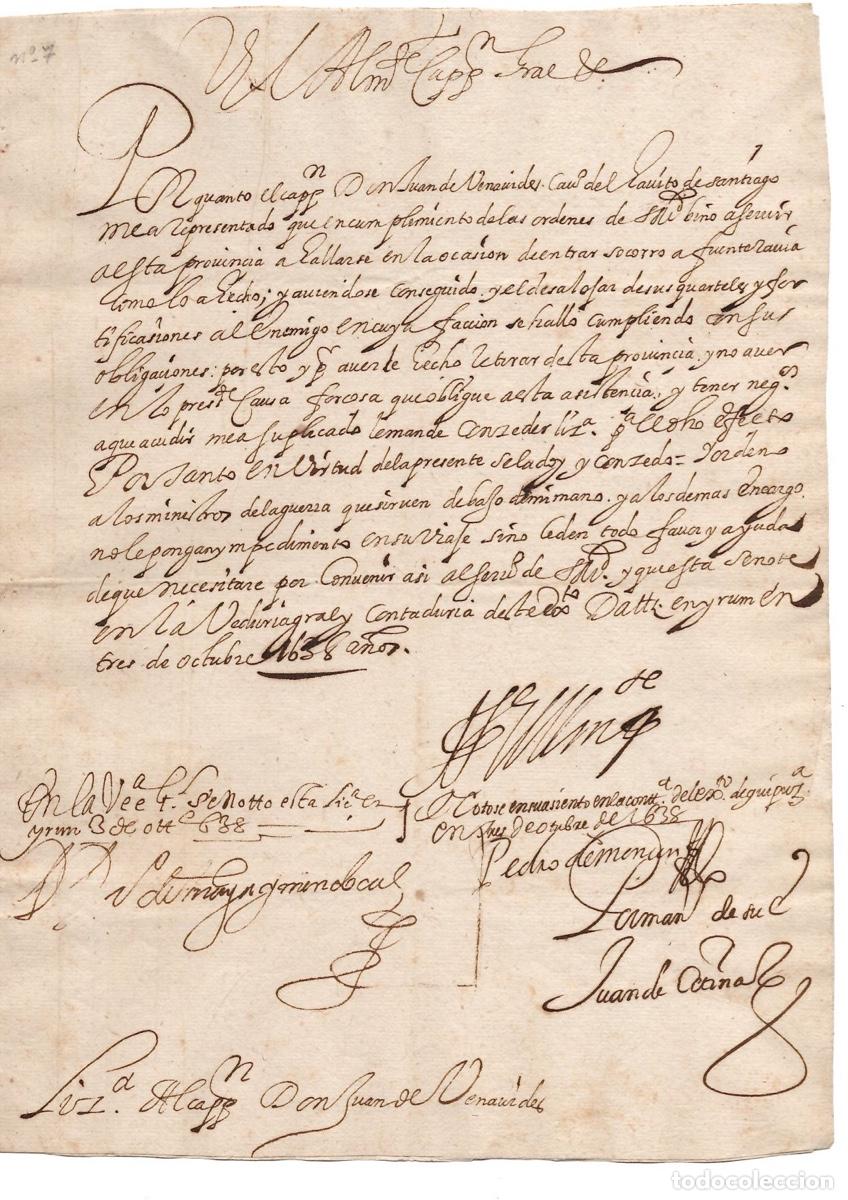 nº 7
El Almte Cappn Gral de
Por quanto el cappn Don Juan de Venavides. Cavº del Havito de santiago
mea Representado que en cumplimiento de las ordenes de S Md bino a servir
a esta provincia a hallarse en la ocasion de entrar socorro a fuenteravia
como lo a hecho; y aviendose conseguido y el desalojar de sus quarteles y for
tificasiones al Enemigo en cuya faccion se hallo cumpliendo con sus
obligaciones: por esto y pr averse hecho retirar desta provincia, y no aver
en lo preste Causa forcosa que obligue a esta asistencia, y tener negos
a que acudir mea suplicado le mande conzeder lizª pª el dho efecto
Por tanto en virtud de la presente se la doy y conzedo = Y ordeno
a los ministros de la guerra que sirven debajo de mi mano. y a los demas encargo
no le pongan ympedimento en su viaje sino le den todo favor y ayuda
de que necesitare por convenir asi al servº de S Md. y que esta se note
en la Veduria gral y contaduria deste exto Datt. en yrum en
tres de octubre 1638 años.
En la Vee gl Se Notto esta lizª en
yrun 3 de ottе 638
Notose en su asiento en la contª del exto de guipuzª
en tres de otubre de 1638
Pedro de
Por man de su E
Juan de
Lizª Al cappn Don Juan de Venavides
todocoleccion